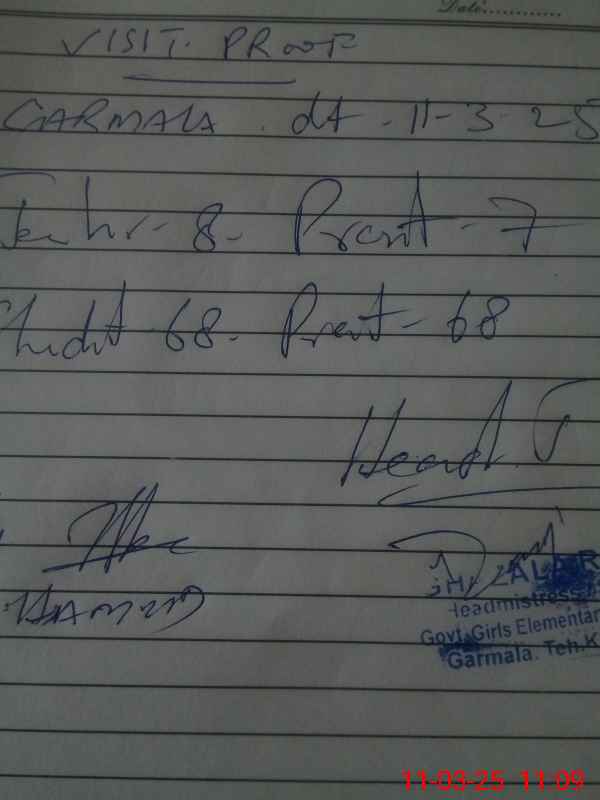 Date:............
VISIT. PROOF
GARMALA. dt - 11-3-25
8- Present - 7
68- Present - 68
Head.T
HAMEED
Headmistress
Govt. Girls Elementar
Garmala. Teh.K
11-03-25 11:09